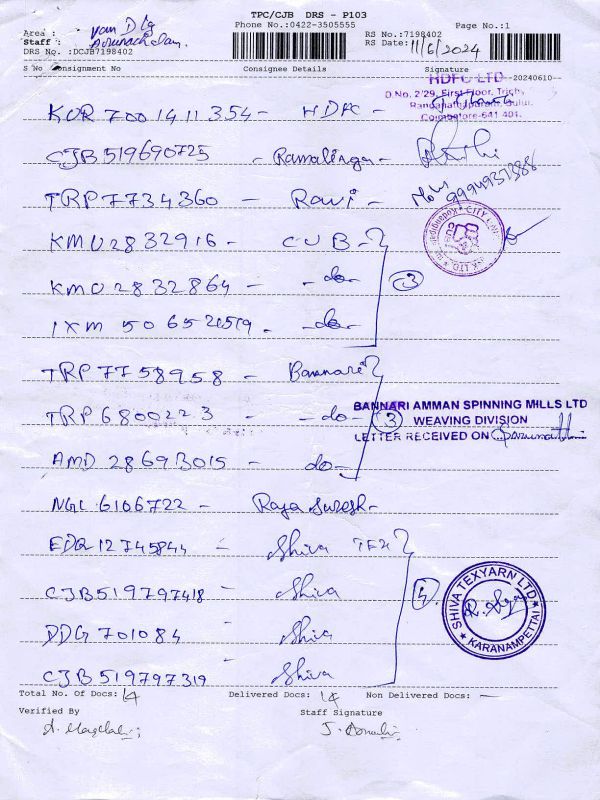 TPC/CJB DRS - P103
Phone No.:0422-3505555
Page No.:1
Area :
Staff : Arunachalam
RS No.:7198402
RS Date: 11/6/2024
DRS No. :DCJB7198402
S No Consignment No Consignee Details Signature
--20240610--
HDFC LTD
D.No. 2'29, First Floor, Trichy
Coimbatore-641 401.
KUR 700 1411 354 - HDFC -
CJB 519690725 - Ramalinga -
TRP7734360 - Ravi - 9994937388
KMU2832916 - CUB -
KMU 2832864 - - do - 3
IXM 506521519. - do -
TRP 7758958 - Bannari
TRP 6800223 - do - 3
BANNARI AMMAN SPINNING MILLS LTD
WEAVING DIVISION
LETTER RECEIVED ON
AMD 28693015 - do -
NGL 6106722 - Raja Suresh -
EDQ 12745844 - Shiva TEX
CJB519797418 - Shiva 4
SHIVA TEXYARN LTD
KARANAMPETTAI
DDG 701084 - Shiva
CJB 519797319 - Shiva
Total No. Of Docs: 14 Delivered Docs: 14 Non Delivered Docs: —
Verified By Staff Signature